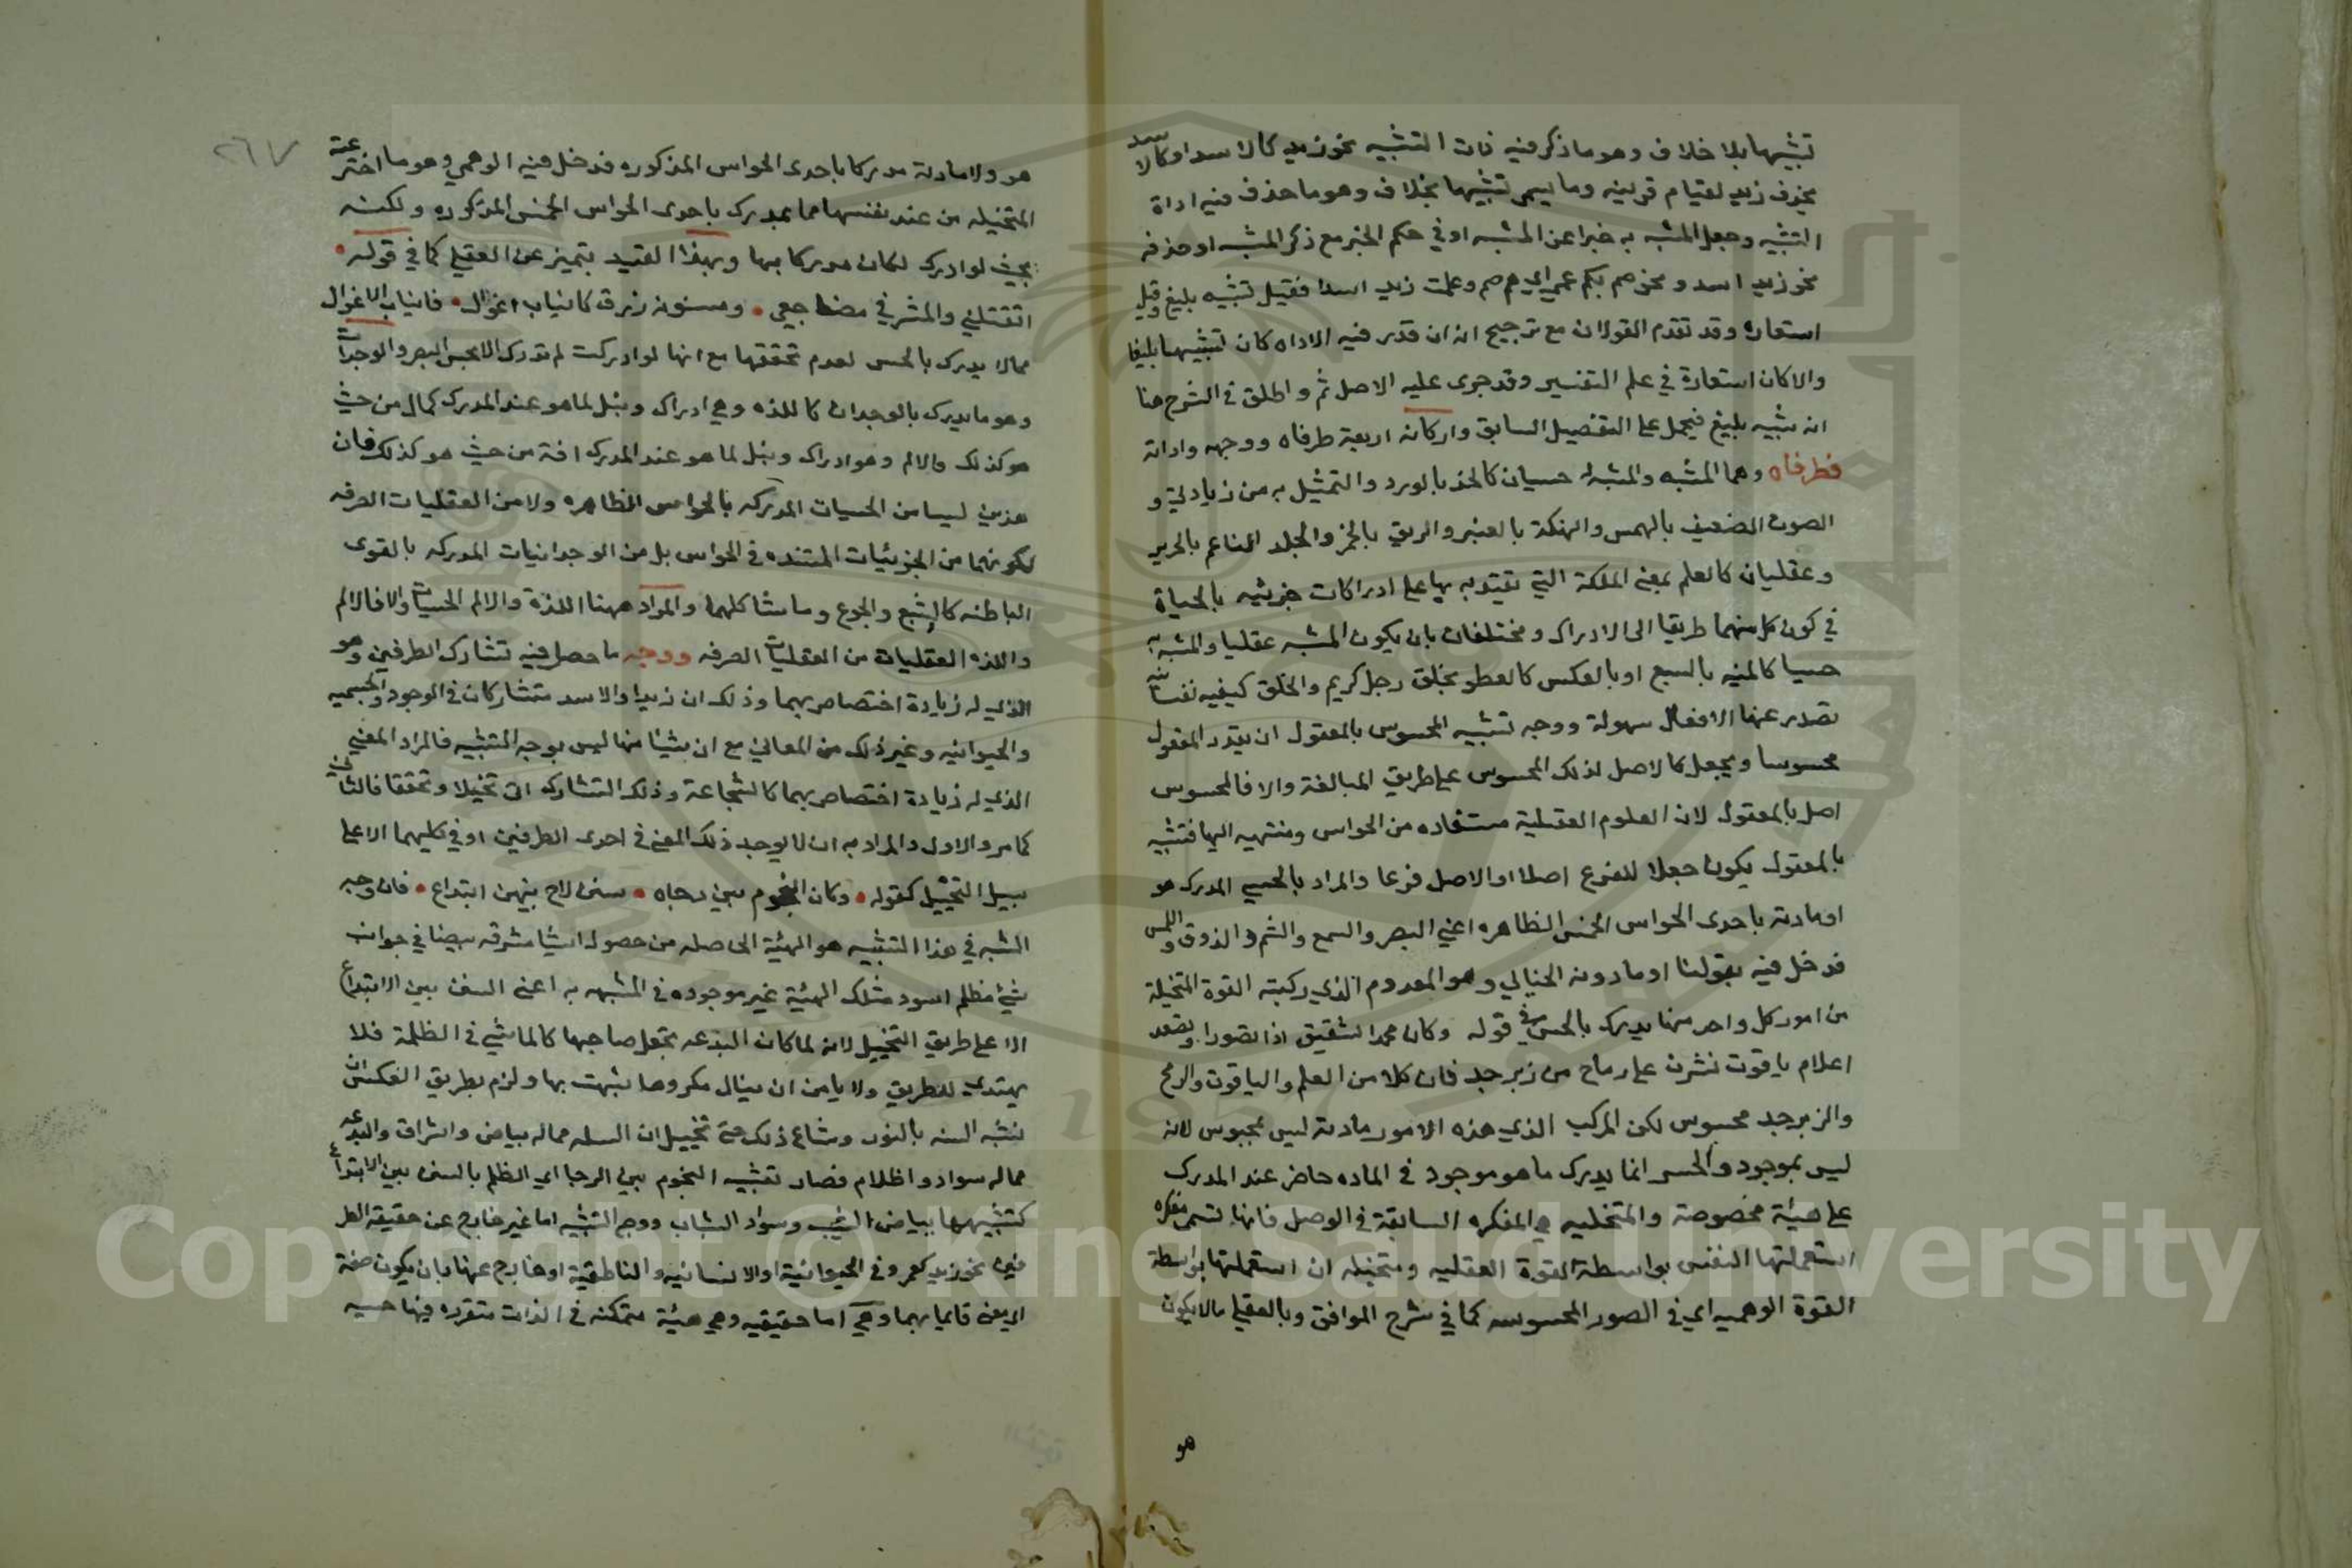 تشبيها بلا خلاف وهو ما ذكر فيه ذات التشبيه نحو زيد كالاسد او كالاسد
بحذف زيد لقيام قرينه وما يسمى تشبيها بخلاف وهو ما حذف فيه اداة
التشبيه وجعل المشبه به خبرا عن المشبه او في حكم الخبر مع ذكر المشبه او حذفه
نحو زيد اسد ونحو صم بكم عمي اي هم صم وعلمت زيد اسدا فقيل تشبيه بليغ وقيل
استعاره وقد تقدم القولان مع ترجيح انه ان قدر فيه الاداه كان تشبيها بليغا
والا كان استعارة في علم التفسير وقد جرى عليه الاصل ثم واطلق في الشرح هنا
انه تشبيه بليغ فيحمل على التفصيل السابق واركانه اربعة طرفاه ووجهه واداته
فطرفاه وهما المشبه والمشبه به حسيان كالخد بالورد والتمثيل به من زيادتي و
الصوت الضعيف بالهمس والنكهة بالعنبر والريق بالخمر والجلد الناعم بالحرير
وعقليان كالعلم بمعنى الملكة التي يقتدر بها على ادراكات جزئيه بالحياة
في كون كل منهما طريقا الى الادراك ومختلفان بان يكون المشبه عقليا والمشبه به
حسيا كالمنيه بالسبع او بالعكس كالعطر بخلق رجل كريم والخلق كيفيه نفسانيه
تصدر عنها الافعال سهولة ووجه تشبيه المحسوس بالمعقول ان يقدر المعقول
محسوسا ويجعل كالاصل لذلك المحسوس على طريق المبالغة والا فالمحسوس
اصل بالمعقول لان العلوم العقلية مستفاده من الحواس ومنتهيه اليها فتشبيه
بالمعقول يكون جعلا للفرع اصلا والاصل فرعا والمراد بالحسي المدرك هو
او مادته باحدى الحواس الخمس الظاهره اعني البصر والسمع والشم والذوق واللمس
فدخل فيه بقولنا او مادته الخيالي وهو المعدوم الذي ركبته القوة المتخيلة
من امور كل واحد منها يدرك بالحس في قوله وكان محمر الشقيق اذا تصوب او تصعد
اعلام ياقوت نشرن على رماح من زبرجد فان كلا من العلم والياقوت والرمح
والزبرجد محسوس لكن المركب الذي هذه الامور مادته ليس بمحسوس لانه
ليس بموجود والحس انما يدرك ما هو موجود في الماده حاضر عند المدرك
على هيئة مخصوصة والمتخليه هي المفكره السابقة في الوصل فانها تسمى مفكره
استعملتها النفس بواسطة القوة العقليه ومتخيله ان استعملتها بواسطة
القوة الوهميه اي في الصور المحسوسه كما في شرح المواقف وبالعقلي ما لا يكون
هو
٢٦٧
هو ولا مادته مدركا باحدى الحواس المذكوره فدخل فيه الوهمي وهو ما اخترعته
المتخيله من عند نفسها مما يدرك باحدى الحواس الخمس المذكوره ولكنه
بحيث لو ادرك لكان مدركا بها وبهذا القيد يتميز عن العقلي كما في قوله
اتقتلني والمشرفي مضاجعي ومسنونة زرق كانياب اغوال فانياب الاغوال
مما لا يدرك بالحس لعدم تحققها مع انها لو ادركت لم تدرك الا بحس البصر والوجدات
وهو ما يدرك بالوجدان كاللذه وهي ادراك ونيل لما هو عند المدرك كمال من حيث
هو كذلك والالم وهو ادراك ونيل لما هو عند المدرك افة من حيث هو كذلك فان
هذين ليسا من الحسيات المدركه بالحواس الظاهره ولا من العقليات الصرفه
لكونهما من الجزئيات المستنده في الحواس بل من الوجدانيات المدركه بالقوى
الباطنه كالشبع والجوع وما شاكلهما والمراد ههنا اللذة والالم الحسيات والا فالالم
واللذه العقليات من العقليات الصرفه ووجهه ما حصل فيه تشارك الطرفين وهو
الذي له زيادة اختصاص بهما وذلك ان زيدا والاسد متشاركان في الوجود والجسميه
والحيوانيه وغير ذلك من المعاني مع ان شيئا منها ليس بوجه التشبيه فالمراد المعنى
الذي له زيادة اختصاص بهما كالشجاعة وذلك التشارك اتى تخيلا وتحققا فالثاني
كما مر والاول والمراد به ان لا يوجد ذلك المعنى في احدى الطرفين او في كليهما الا على
سبيل التخييل كقوله وكان النجوم بين دجاه سنن لاح بينهن ابتداع فان وجه
الشبه في هذا التشبيه هو الهيئة الحاصله من حصول اشيا مشرقه بيضا في جوانب
شيء مظلم اسود فتلك الهيئة غير موجوده في المشبه به اعني السنن بين الابتداع
الا على طريق التخييل لانه لما كان البدعه تجعل صاحبها كالماشي في الظلمة فلا
يهتدي للطريق ولا يامن ان ينال مكروها شبهت بها ولزم بطريق العكس ان
تشبه السنه بالنور وشاع ذلك حتى تخييل ان السنه مما له بياض واشراق والبدعه
مما له سواد واظلام فصار تشبيه النجوم بين الدجا اي الظلم بالسنن بين الابتداع
كتشبيهها ببياض الشيب وسواد الشباب ووجه التشبيه اما غير خارج عن حقيقة الطر
فين نحو زيد كعمرو في الحيوانية او الانسانيه والناطقية او خارج عنها بان يكون صفة
اي معنى قايما بهما وهي اما حقيقيه وهي هيئة متمكنه في الذات متقرره فيها حسيه
Copyright © King Saud University
1957